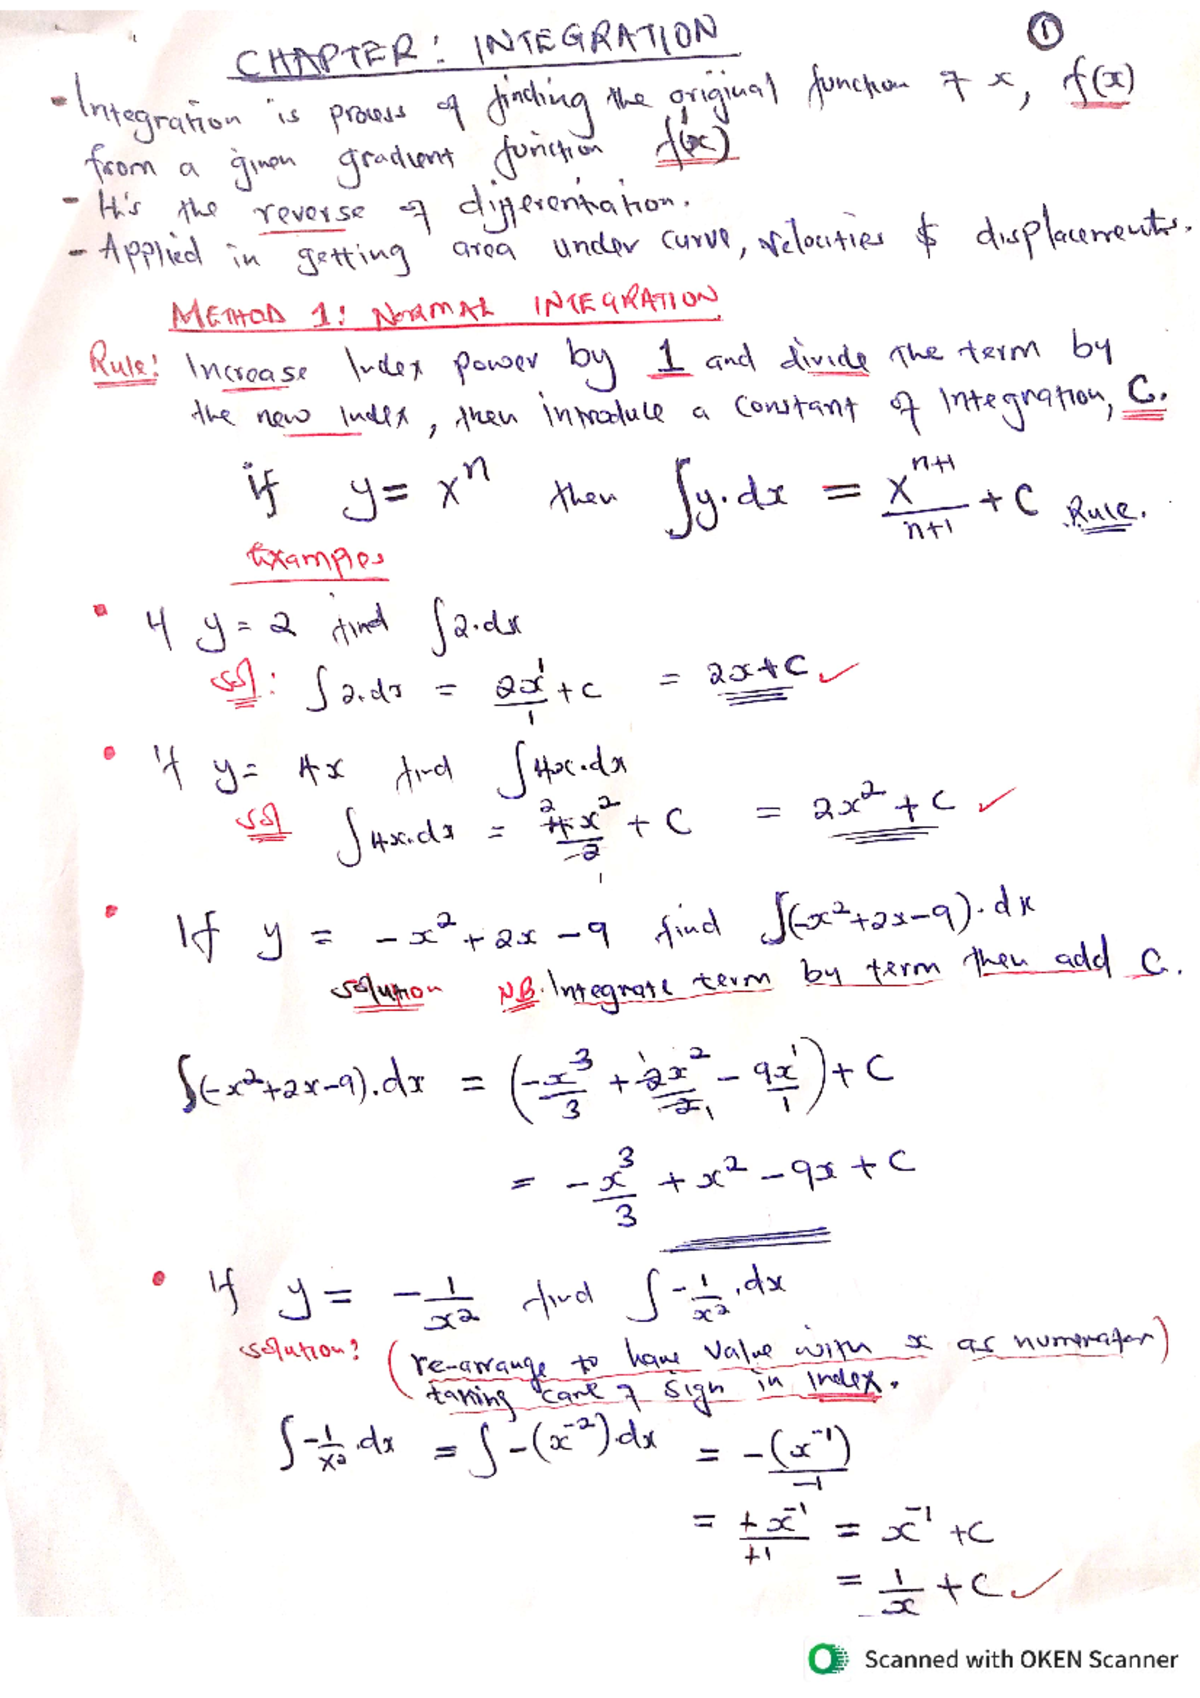 CHAPTER: INTEGRATION
①
- Integration is process of finding the original function of x, f(x)
from a given gradient function f'(x)
- It's the reverse of differentiation.
- Applied in getting area under curve, velocities & displacements.
METHOD 1: NORMAL INTEGRATION
Rule: Increase Index power by 1 and divide the term by
the new index, then introduce a constant of Integration, C.
if y = xⁿ then ∫y.dx = xⁿ⁺¹/n+1 + C Rule.
Examples
• If y = 2 find ∫2.dx
Sol: ∫2.dx = 2x¹/1 + C = 2x+C ✓
• If y = 4x find ∫4x.dx
Sol ∫4x.dx = 4x²/2 + C = 2x² + C ✓
• If y = -x² + 2x - 9 find ∫(-x²+2x-9).dx
Solution NB. Integrate term by term then add C.
∫(-x²+2x-9).dx = (-x³/3 + 2x²/2 - 9x¹/1) + C
= -x³/3 + x² - 9x + C
• If y = -1/x² find ∫-1/x².dx
Solution: (re-arrange to have value with x as numerator)
taking care of sign in index.
∫-1/x².dx = ∫-(x⁻²).dx = -(x⁻¹)/-1
= +x⁻¹/+1 = x⁻¹ + C
= 1/x + C ✓
Scanned with OKEN Scanner